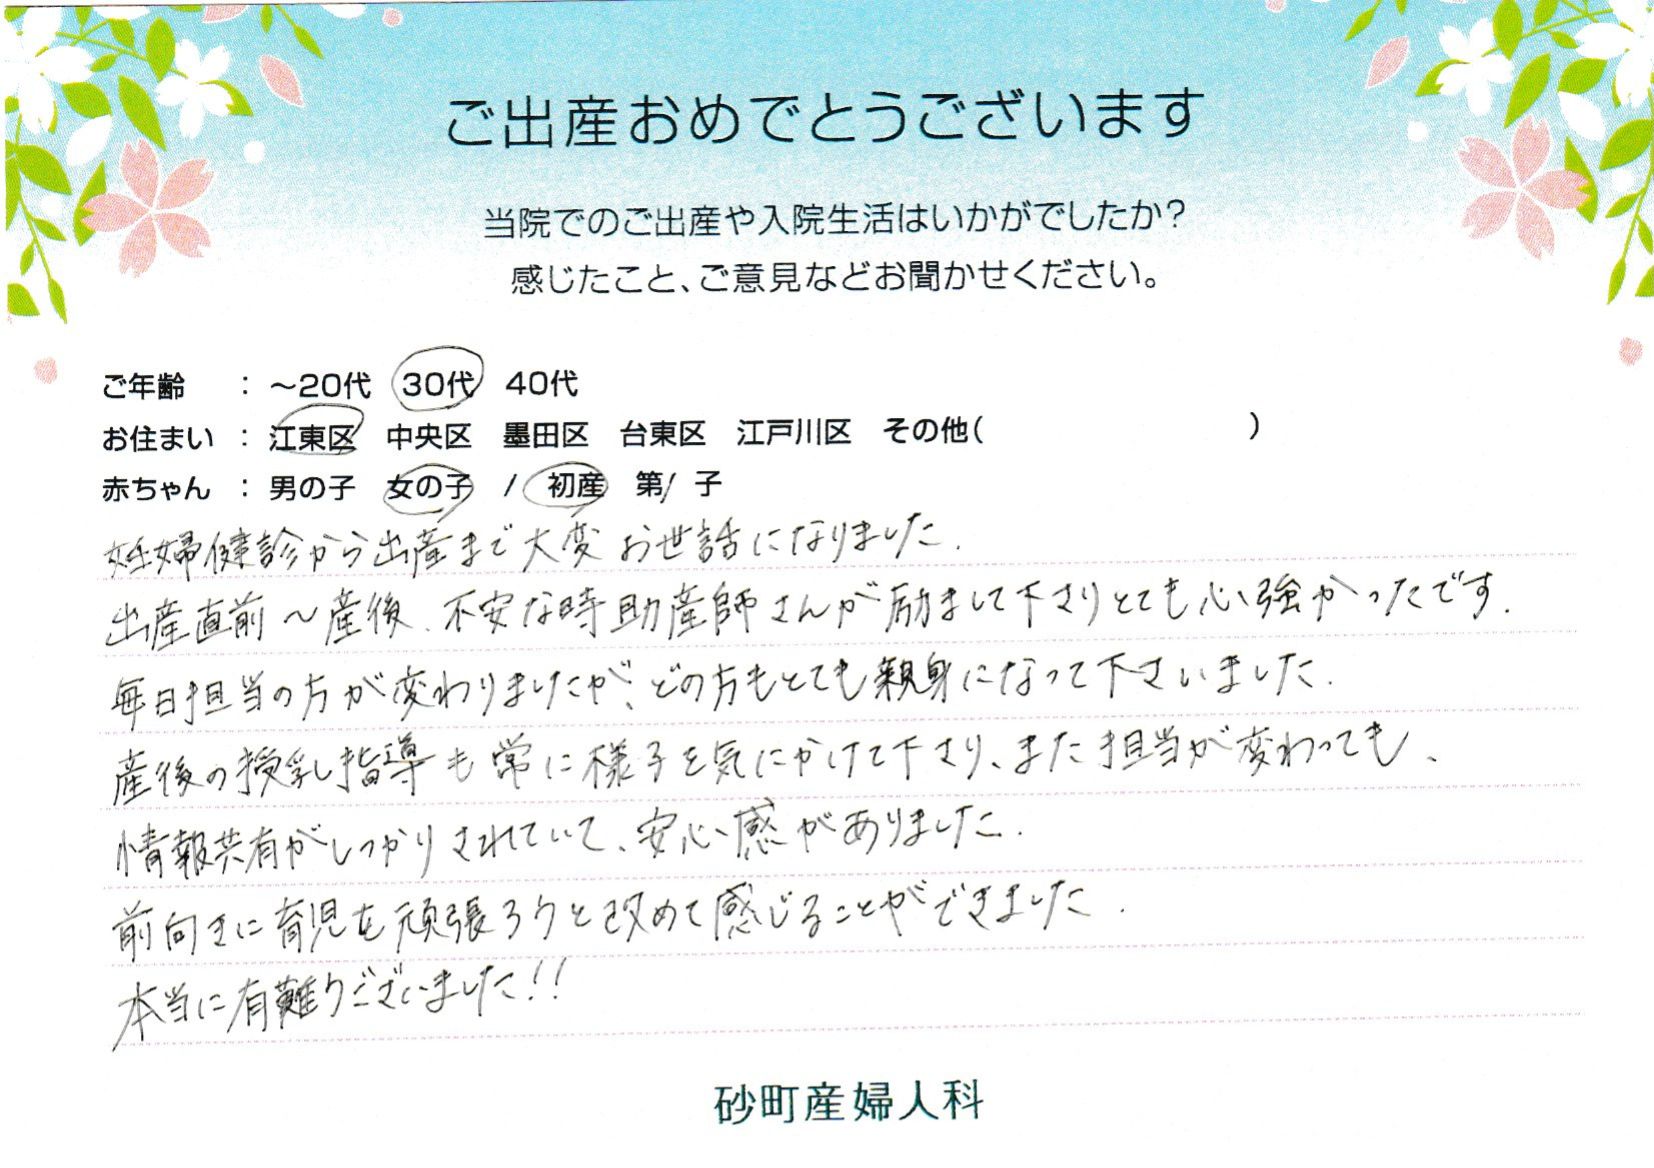 ご出産おめでとうございます
当院でのご出産や入院生活はいかがでしたか？
感じたこと、ご意見などお聞かせください。
ご年齢 ： ～20代 30代 40代
お住まい ： 江東区 中央区 墨田区 台東区 江戸川区 その他( )
赤ちゃん ： 男の子 女の子 / 初産 第1子
妊婦健診から出産まで大変お世話になりました.
出産直前～産後、不安な時助産師さんが励まして下さりとても心強かったです.
毎日担当の方が変わりましたが、どの方もとても親身になって下さいました.
産後の授乳指導も常に様子を気にかけて下さり、また担当が変わっても、
情報共有がしっかりされていて、安心感がありました.
前向きに育児を頑張ろうと改めて感じることができました.
本当に有難うございました!!
砂町産婦人科